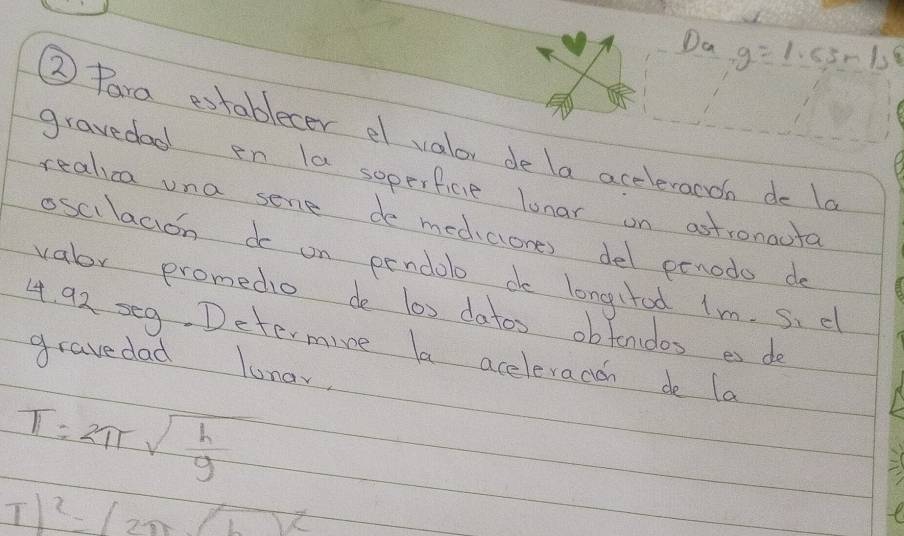 Da g = 1.63m/s
② Para establecer el valor de la aceleración de la
gravedad en la soperficie lonar on astronauta
realiza una serie de mediciones del periodo de
oscilación de on pendolo de longitod 1m. Si el
valor promedio de los datos obtenidos es de
4.92 seg. Determine la aceleración de la
gravedad lonar.
T = 2π √(h/g)
T)² = (2π √